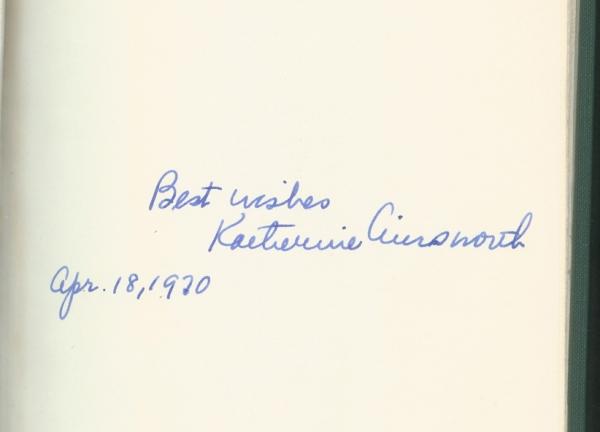 Best wishes
Katherine Ainsworth
Apr. 18, 1970